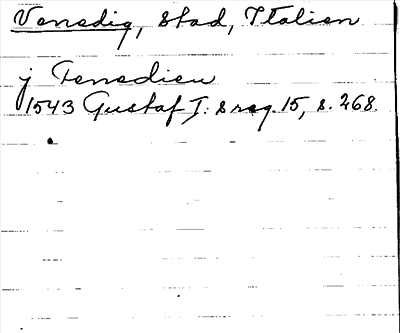 Venedig, stad, Italien
j Fenedien
1543 Gustaf I: s reg. 15, s. 268.